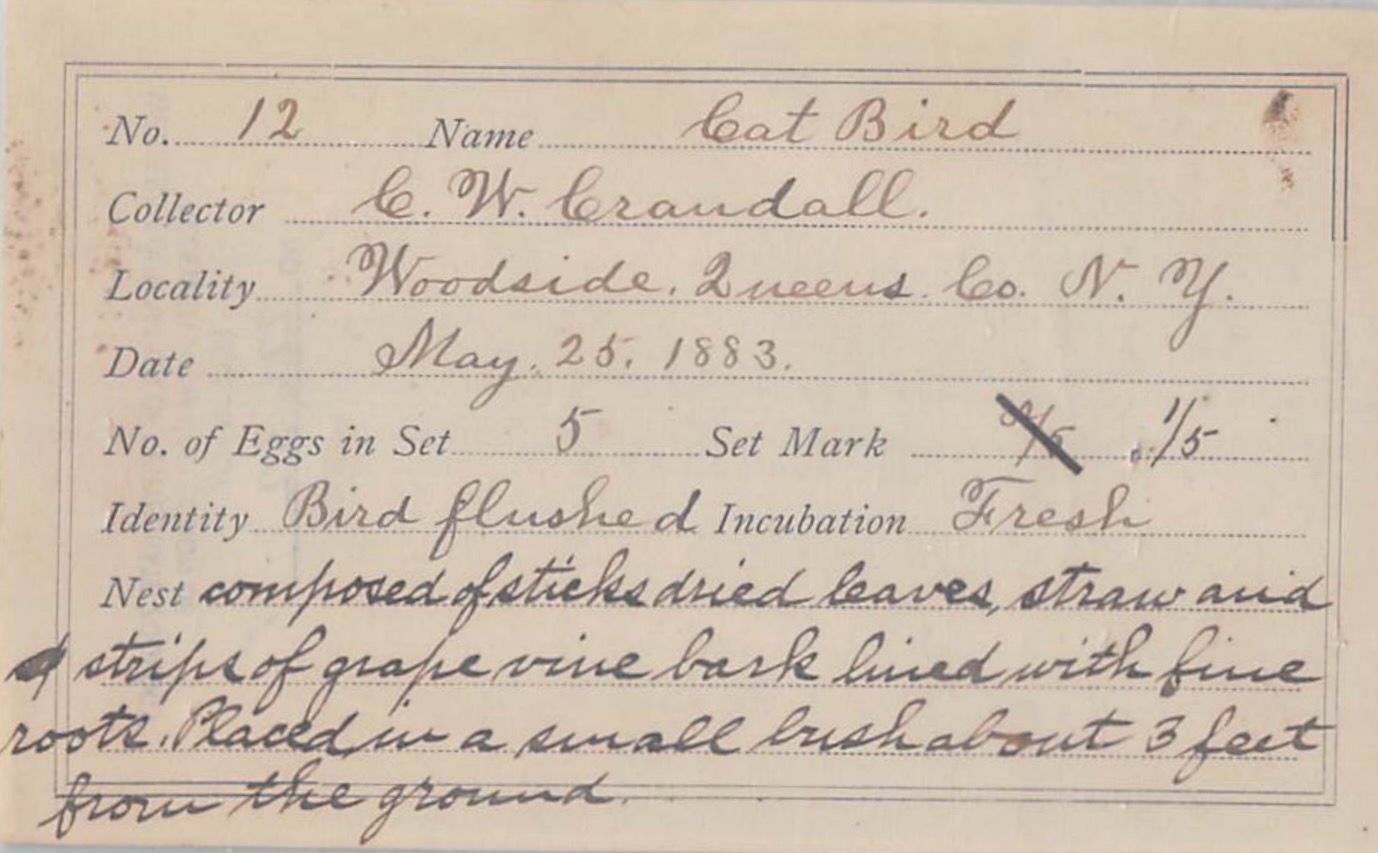 No. 12 Name Cat Bird
Collector C. W. Crandall.
Locality Woodside. Queens Co. N. Y.
Date May. 25. 1883.
No. of Eggs in Set 5 Set Mark 1/5
Identity Bird flushed Incubation Fresh
Nest composed of sticks dried leaves, straw and
strips of grape vine bark lined with fine
roots. Placed in a small bush about 3 feet
from the ground.